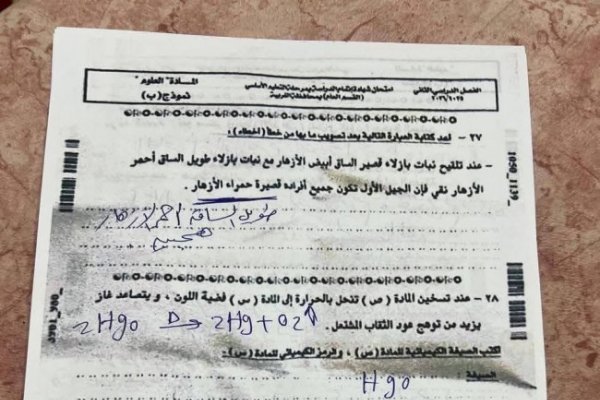 الفصل الدراسي الثاني امتحان شهادة إتمام الدراسة بمرحلة التعليم الأساسي المادة "العلوم"
٢٠٢٦/٢٠٢٥ (القسم العام) بمحافظة الغربية نموذج (ب)
٢٧ - أعد كتابة العبارة التالية بعد تصويب ما بها من خطأ (أخطاء) :
- عند تلقيح نبات بازلاء قصير الساق أبيض الأزهار مع نبات بازلاء طويل الساق أحمر
الأزهار نقي فإن الجيل الأول تكون جميع أفراده قصيرة حمراء الأزهار .
طويل الساق احمر الازهار
٢٨ - عند تسخين المادة ( س ) تنحل بالحرارة إلى المادة ( ص ) فضية اللون ، ويتصاعد غاز
يزيد من توهج عود الثقاب المشتعل .
2Hgo Δ→ 2Hg + O2↑
اكتب الصيغة الكيميائية للمادة (س) ، والرمز الكيميائي للمادة (ص) :
الصيغة Hgo